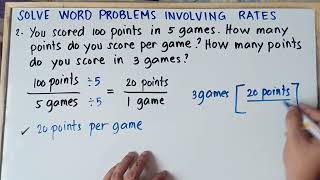 SOLVE WORD PROBLEMS INVOLVING RATES
2. You scored 100 points in 5 games. How many
points do you score per game? How many points
do you score in 3 games?
100 points ÷5 = 20 points
5 games ÷5 1 game
3 games [ 20 points ]
✓ 20 points per game